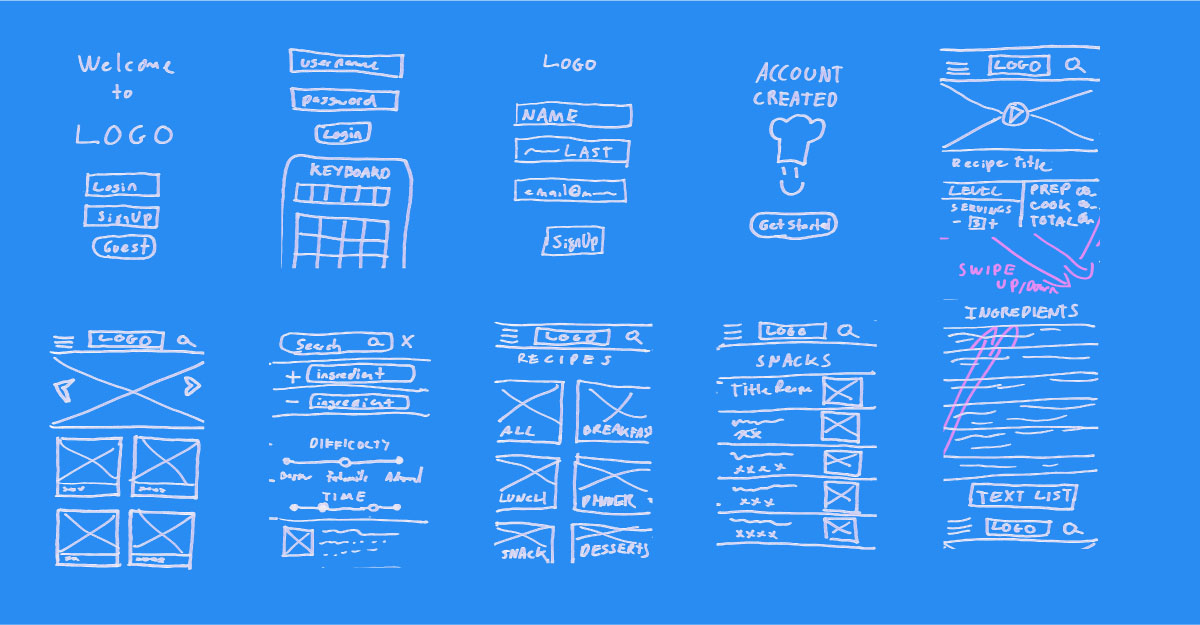 Welcome
to
LOGO
Login
SignUp
Guest
username
password
Login
KEYBOARD
LOGO
NAME
LAST
email@
SignUp
ACCOUNT
CREATED
Get Started
LOGO
Recipe Title
LEVEL
SERVINGS
- 3 +
PREP
COOK
TOTAL
SWIPE
UP/Down
INGREDIENTS
TEXT LIST
LOGO
LOGO
Search X
+ ingredient
- ingredient
DIFFICULTY
TIME
LOGO
RECIPES
ALL
BREAKFAST
LUNCH
DINNER
SNACK
DESSERTS
LOGO
SNACKS
Title Recipe
xx
xxxx
xxx
xxxx